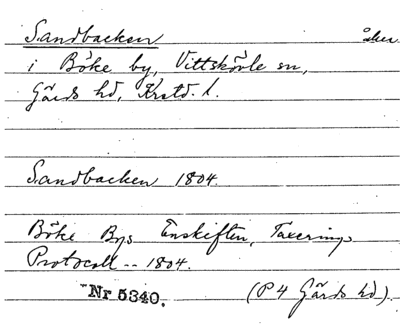 Sandbacken åker
i Böke by, Vittskövle sn,
Gärds hd, Krstd. l.
Sandbacken 1804.
Böke Bys Enskiften, Taxerings
Protocoll -- 1804.
Nr 5340. (P 4 Gärds hd).